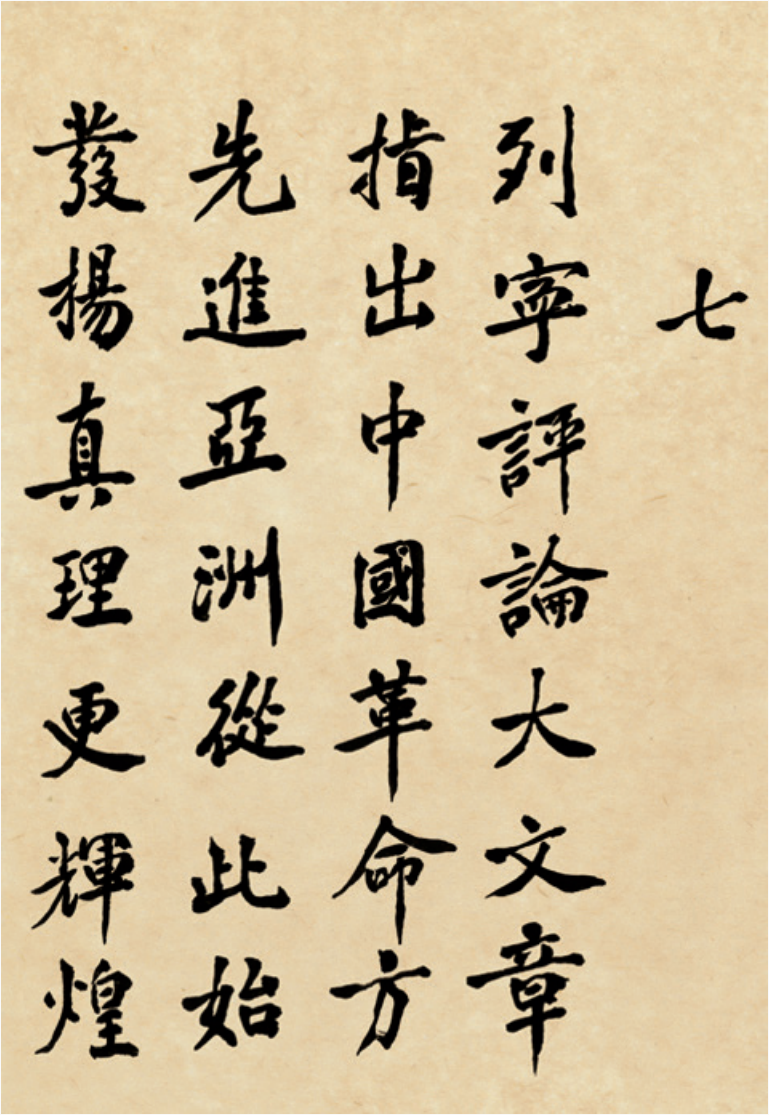 七
列寧評論大文章
指出中國革命方
先進亞洲從此始
發揚真理更輝煌